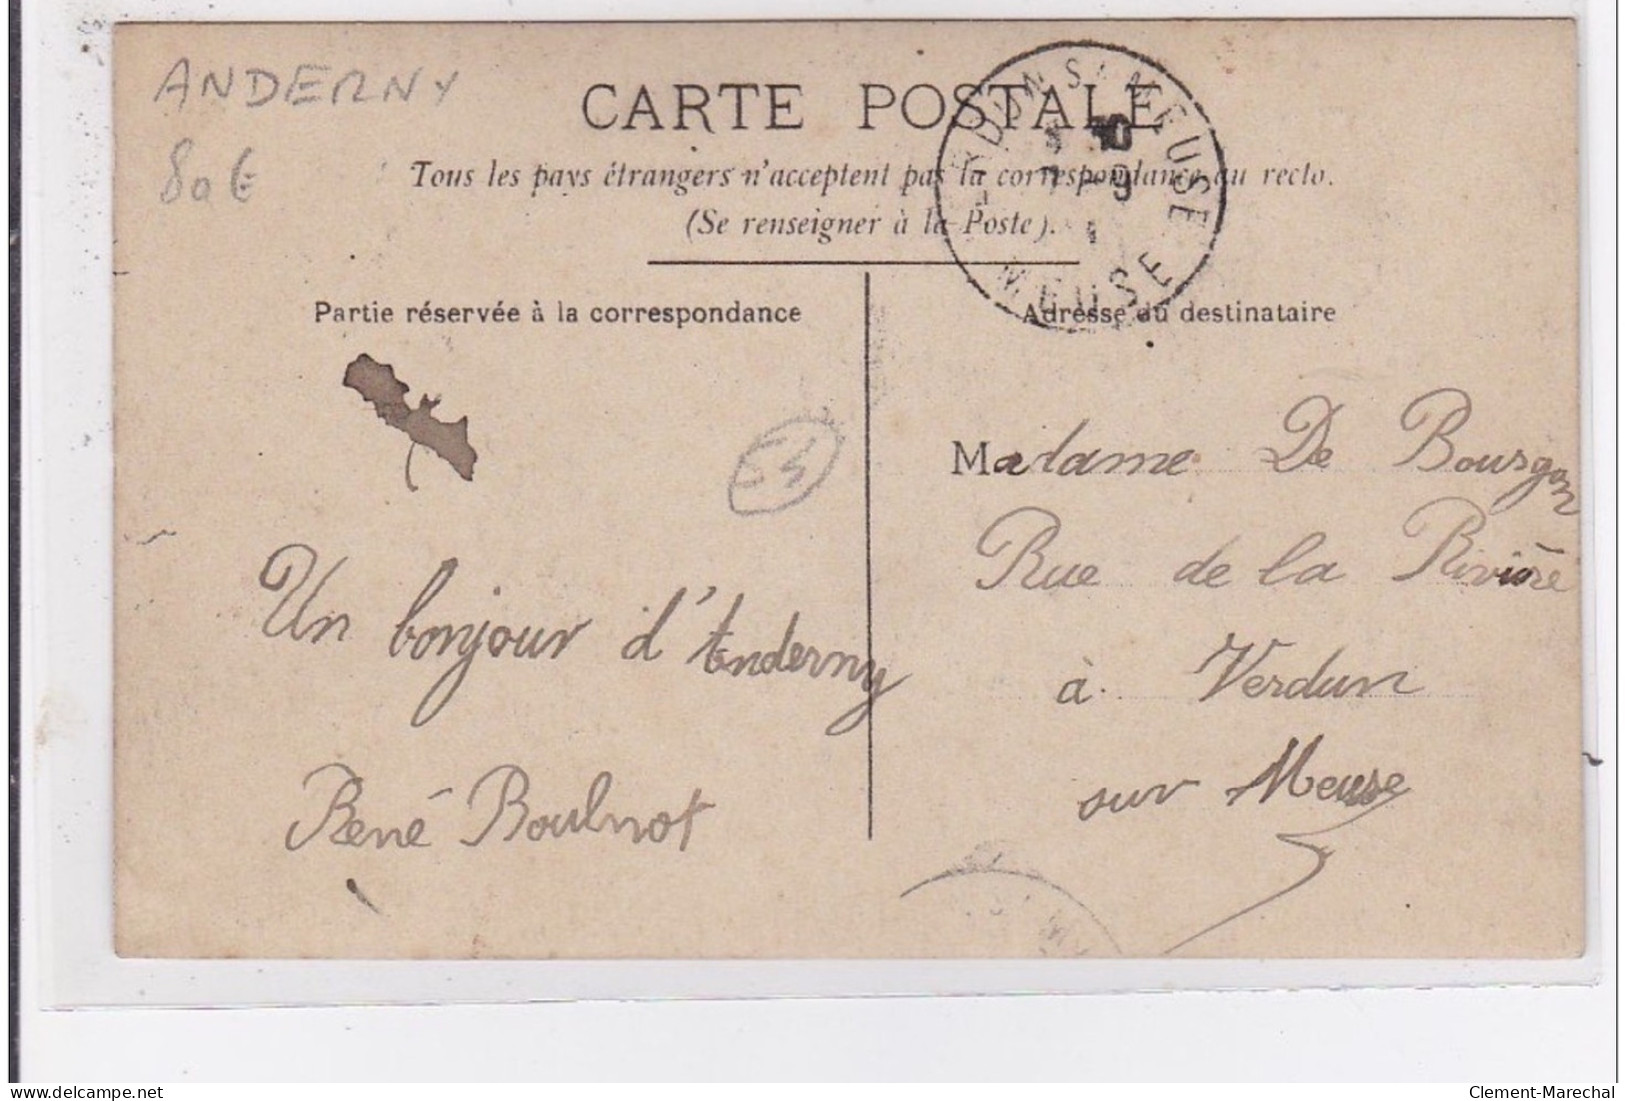 ANDERNY
80€
CARTE POSTALE
Tous les pays étrangers n'acceptent pas la correspondance au recto.
(Se renseigner à la Poste).
Partie réservée à la correspondance
Adresse du destinataire
54
Un bonjour d'Anderny
René Boulnot
Madame De Bourgon
Rue de la Rivière
à Verdun
sur Meuse
MEUSE
delcampe.net
Clement-Marechal